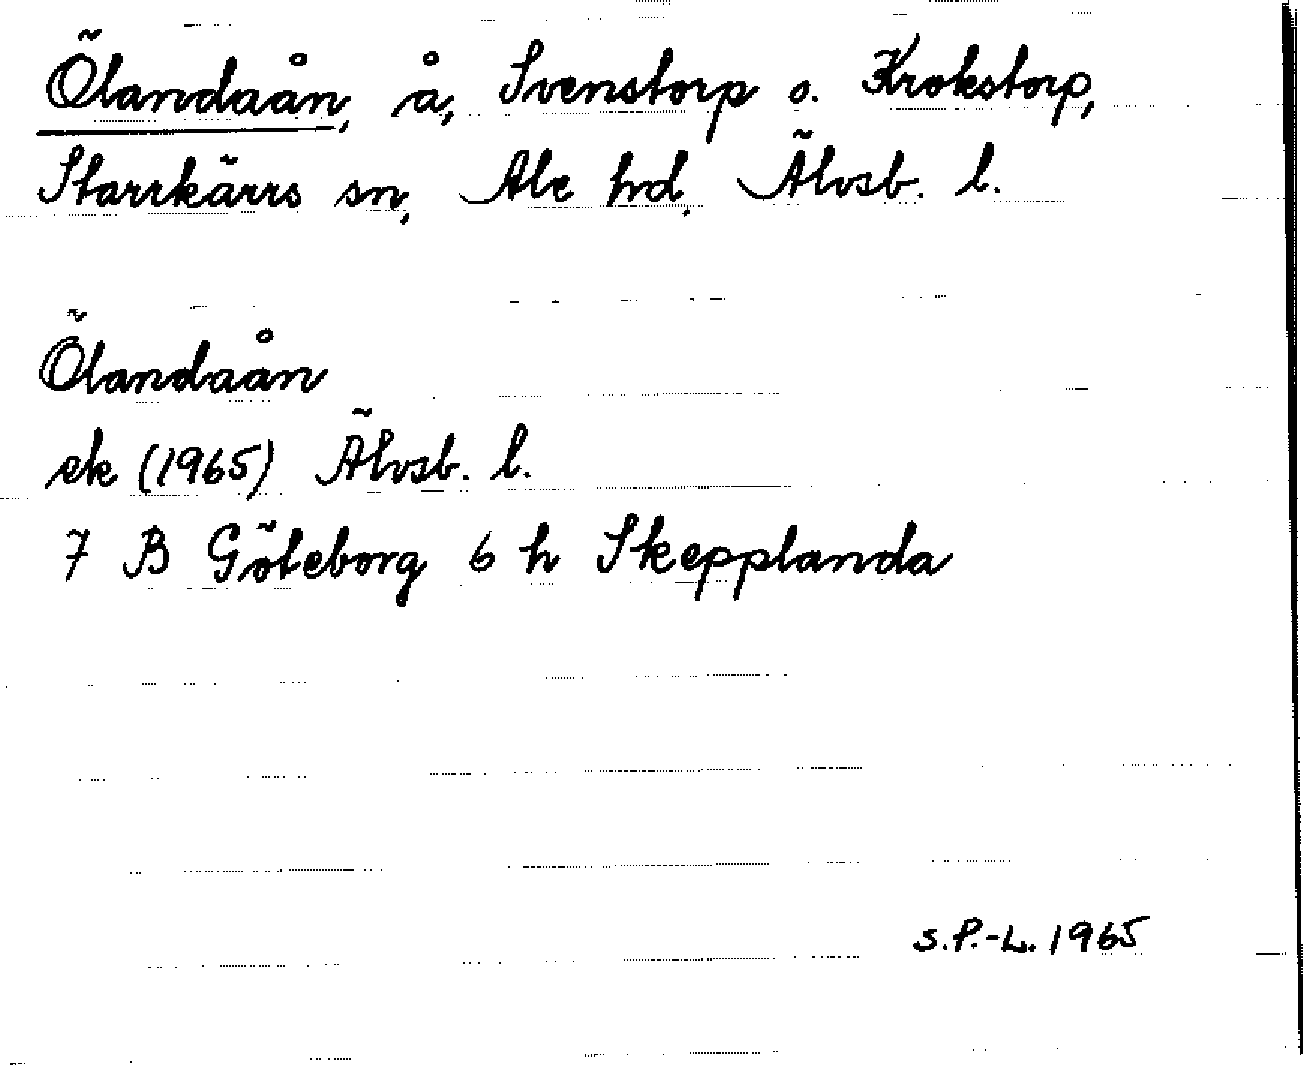 Ölandaån, å, Svenstorp o. Krokstorp,
Starrkärrs sn, Ale hd, Älvsb. l.
Ölandaån
ek (1965) Älvsb. l.
7 B Göteborg 6 h Skepplanda
S.P.-L. 1965